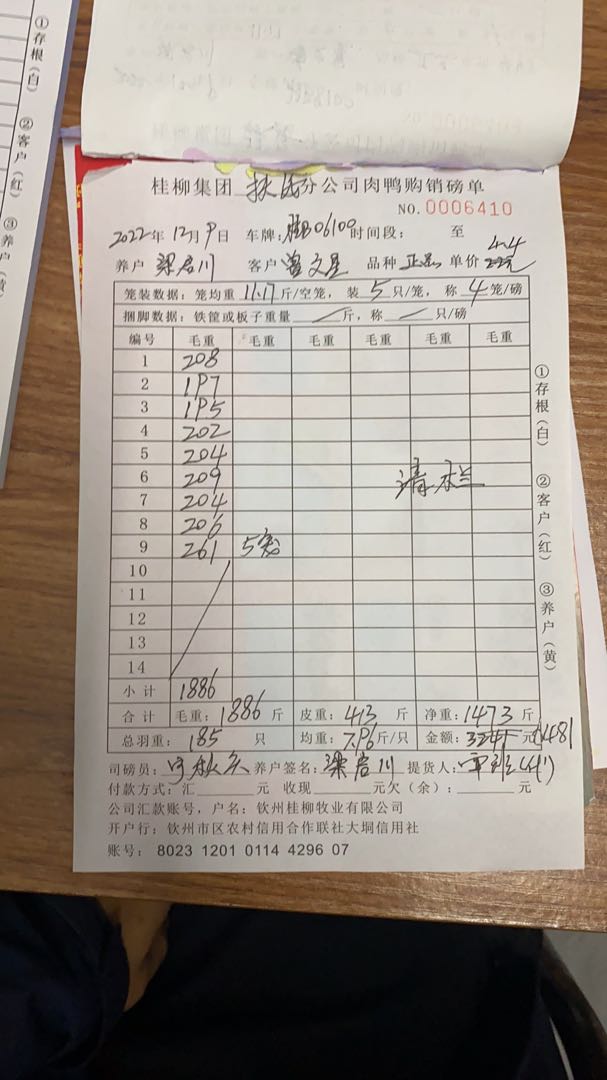 ①存根(白) ②客户(红) ③养户(黄)
桂柳集团 分公司肉鸭购销磅单
NO.0006410
2022年12月9日 车牌: B06100 时间段: 至
养户 梁启川 客户 曾文星 品种 正品 单价 4.4
笼装数据: 笼均重 11.17 斤/空笼, 装 5 只/笼, 称 4 笼/磅
捆脚数据: 铁筐或板子重量 / 斤, 称 / 只/磅
编号 毛重 毛重 毛重 毛重 毛重 毛重
1 208
2 197
3 195
4 202
5 204
6 209
7 204
8 206
9 261 5笼
10
11
12
13
14
清栏
小计 1886
合计 毛重: 1886 斤 皮重: 413 斤 净重: 1473 斤
总羽重: 185 只 均重: 7.96 斤/只 金额: 元 6481
司磅员: 养户签名: 梁启川 提货人:
付款方式: 汇 元 收现 元欠(余): 元
公司汇款账号, 户名: 钦州桂柳牧业有限公司
开户行: 钦州市区农村信用合作联社大垌信用社
账号: 8023 1201 0114 4296 07
①存根(白) ②客户(红) ③养户(黄)